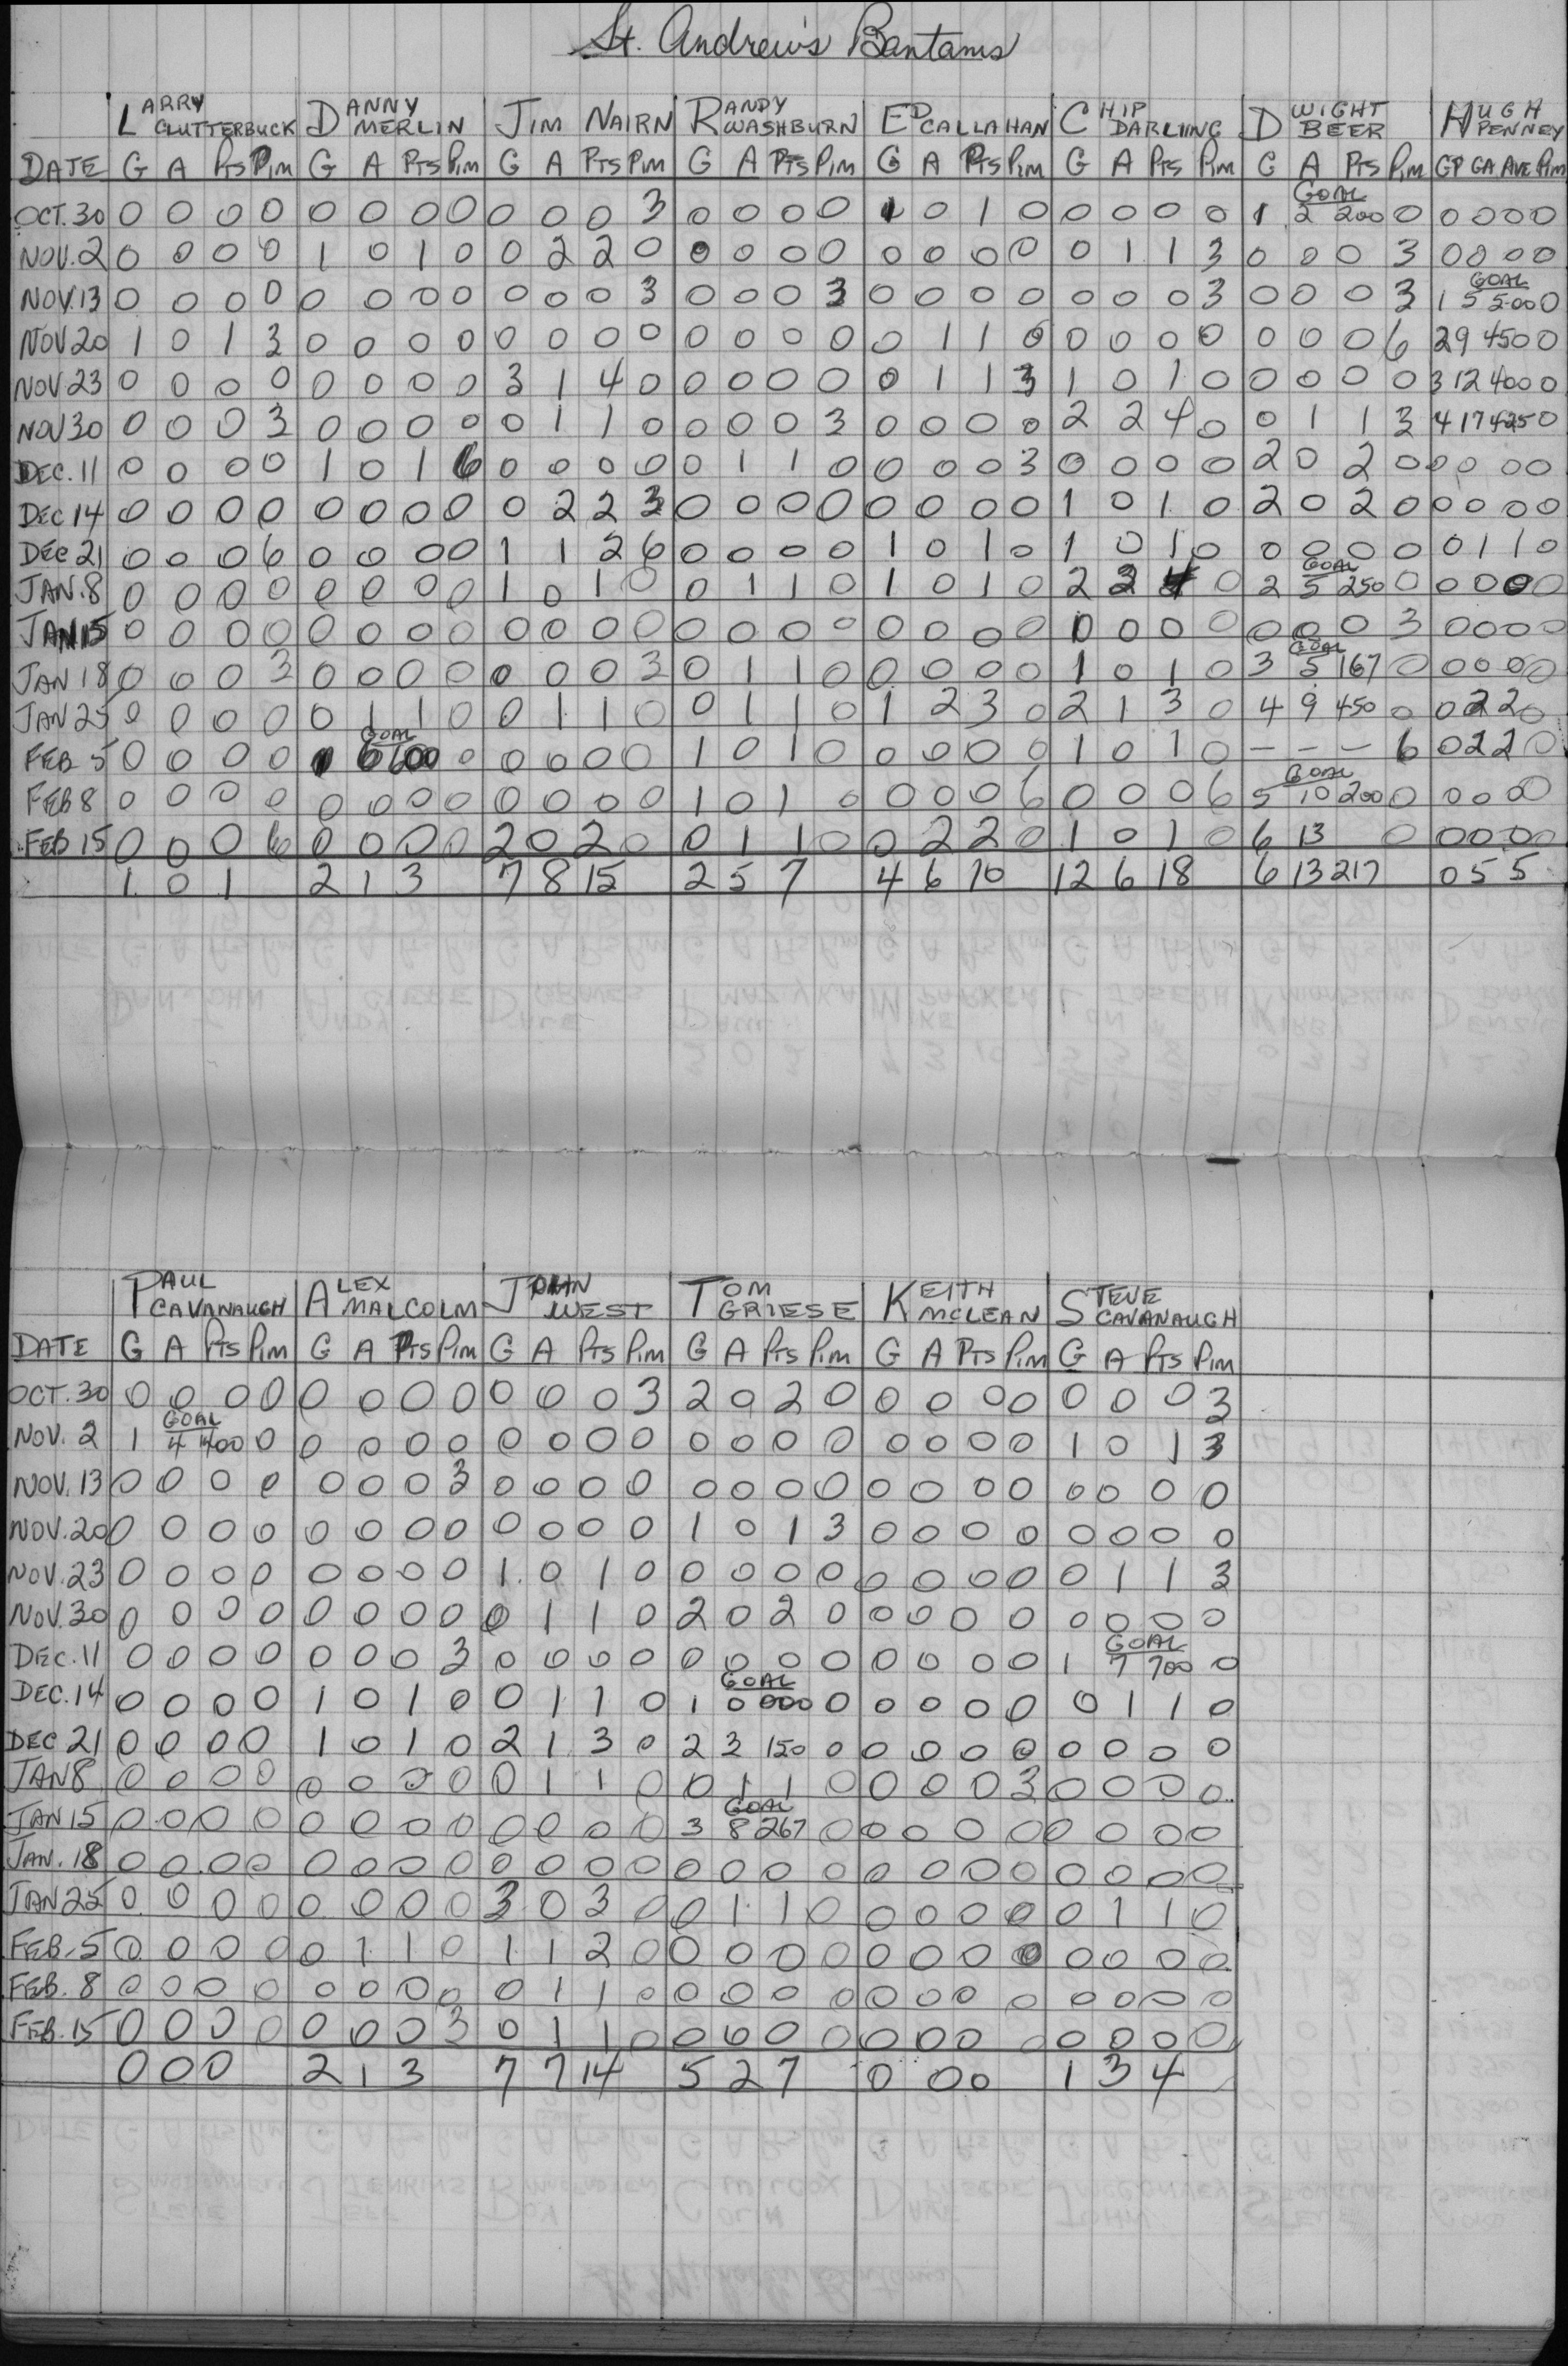 St. Andrew's Bantams
LARRY CLUTTERBUCK DANNY MERLIN JIM NAIRN RANDY WASHBURN ED CALLAHAN CHIP DARLING DWIGHT BEER HUGH PENNEY
DATE G A Pts Pim G A Pts Pim G A Pts Pim G A Pts Pim G A Pts Pim G A Pts Pim G A Pts Pim GP GA AVE Pim
GOAL
OCT. 30 0 0 0 0 0 0 0 0 0 0 0 3 0 0 0 0 1 0 1 0 0 0 0 0 1 2 200 0 0 0 0 0
NOV. 2 0 0 0 0 1 0 1 0 0 2 2 0 0 0 0 0 0 0 0 0 0 1 1 3 0 0 0 3 0 0 0 0
GOAL
NOV. 13 0 0 0 0 0 0 0 0 0 0 0 3 0 0 0 3 0 0 0 0 0 0 0 3 0 0 0 3 1 5 5.00 0
NOV 20 1 0 1 3 0 0 0 0 0 0 0 0 0 0 0 0 0 1 1 0 0 0 0 0 0 0 0 6 2 9 450 0
NOV 23 0 0 0 0 0 0 0 0 3 1 4 0 0 0 0 0 0 1 1 3 1 0 1 0 0 0 0 0 3 12 400 0
NOV 30 0 0 0 3 0 0 0 0 0 1 1 0 0 0 0 3 0 0 0 0 2 2 4 0 0 1 1 3 4 17 425 0
DEC. 11 0 0 0 0 1 0 1 6 0 0 0 0 0 1 1 0 0 0 0 3 0 0 0 0 2 0 2 0 0 0 0 0
DEC 14 0 0 0 0 0 0 0 0 0 2 2 3 0 0 0 0 0 0 0 0 1 0 1 0 2 0 2 0 0 0 0 0
DEC 21 0 0 0 6 0 0 0 0 1 1 2 6 0 0 0 0 1 0 1 0 1 0 1 0 0 0 0 0 0 1 1 0
GOAL
JAN. 8 0 0 0 0 0 0 0 0 1 0 1 0 0 1 1 0 1 0 1 0 2 2 4 0 2 5 250 0 0 0 0 0
JAN 15 0 0 0 0 0 0 0 0 0 0 0 0 0 0 0 0 0 0 0 0 0 0 0 0 0 0 0 3 0 0 0 0
GOAL
JAN 18 0 0 0 3 0 0 0 0 0 0 0 3 0 1 1 0 0 0 0 0 1 0 1 0 3 5 167 0 0 0 0 0
JAN 25 0 0 0 0 0 1 1 0 0 1 1 0 0 1 1 0 1 2 3 0 2 1 3 0 4 9 450 0 0 2 2 0
GOAL
FEB 5 0 0 0 0 1 6 600 0 0 0 0 0 1 0 1 0 0 0 0 0 1 0 1 0 - - - 6 0 2 2 0
GOAL
FEB 8 0 0 0 0 0 0 0 0 0 0 0 0 1 0 1 0 0 0 0 6 0 0 0 6 5 10 200 0 0 0 0 0
FEB 15 0 0 0 6 0 0 0 0 2 0 2 0 0 1 1 0 0 2 2 0 1 0 1 0 6 13 0 0 0 0 0
1 0 1 2 1 3 7 8 15 2 5 7 4 6 10 12 6 18 6 13 217 0 5 5
PAUL CAVANAUGH ALEX MALCOLM JOHN WEST TOM GRIESE KEITH MCLEAN STEVE CAVANAUGH
DATE G A Pts Pim G A Pts Pim G A Pts Pim G A Pts Pim G A Pts Pim G A Pts Pim
OCT. 30 0 0 0 0 0 0 0 0 0 0 0 3 2 0 2 0 0 0 0 0 0 0 0 3
GOAL
NOV. 2 1 4 400 0 0 0 0 0 0 0 0 0 0 0 0 0 0 0 0 0 1 0 1 3
NOV. 13 0 0 0 0 0 0 0 3 0 0 0 0 0 0 0 0 0 0 0 0 0 0 0 0
NOV. 20 0 0 0 0 0 0 0 0 0 0 0 0 1 0 1 3 0 0 0 0 0 0 0 0
NOV. 23 0 0 0 0 0 0 0 0 1 0 1 0 0 0 0 0 0 0 0 0 0 1 1 3
NOV. 30 0 0 0 0 0 0 0 0 0 1 1 0 2 0 2 0 0 0 0 0 0 0 0 0
GOAL
DEC. 11 0 0 0 0 0 0 0 3 0 0 0 0 0 0 0 0 0 0 0 0 1 7 700 0
GOAL
DEC. 14 0 0 0 0 1 0 1 0 0 1 1 0 1 0 000 0 0 0 0 0 0 1 1 0
DEC 21 0 0 0 0 1 0 1 0 2 1 3 0 2 3 150 0 0 0 0 0 0 0 0 0
JAN 8 0 0 0 0 0 0 0 0 0 1 1 0 0 1 1 0 0 0 0 3 0 0 0 0
GOAL
JAN 15 0 0 0 0 0 0 0 0 0 0 0 0 3 8 267 0 0 0 0 0 0 0 0 0
JAN. 18 0 0 0 0 0 0 0 0 0 0 0 0 0 0 0 0 0 0 0 0 0 0 0 0
JAN 25 0 0 0 0 0 0 0 0 3 0 3 0 0 1 1 0 0 0 0 0 0 1 1 0
FEB. 5 0 0 0 0 0 1 1 0 1 1 2 0 0 0 0 0 0 0 0 0 0 0 0 0
FEB. 8 0 0 0 0 0 0 0 0 0 1 1 0 0 0 0 0 0 0 0 0 0 0 0 0
FEB. 15 0 0 0 0 0 0 0 3 0 1 1 0 0 0 0 0 0 0 0 0 0 0 0 0
0 0 0 2 1 3 7 7 14 5 2 7 0 0 0 1 3 4